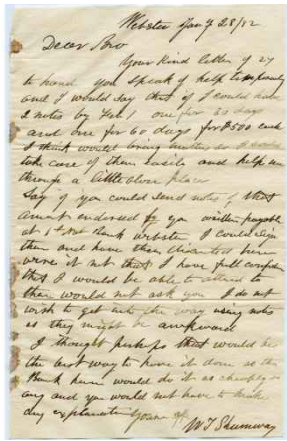 Webster Jany 28/82
Dear Bro
Your kind letter of 27
to hand you speak of help temporarily
and I would say that if I could have
2 notes by Feb 1 one for 30 days
and one for 60 days for $500 each
I think would bring matters so I could
take care of them easily and help me
through a little close place
Say if you could send notes of that
amount endorsed by you written payable
at 1st Nat Bank Webster I could sign
them and have them here
were it not that I have full confidence
that I would be able to attend to
them would not ask you I do not
wish to get into the way using notes
as they might be awkward
I thought perhaps that would be
the best way to have it done as the
Bank here would do it as cheaply as
any and you would not have to make
any explanation Yours &c
W T Shumway